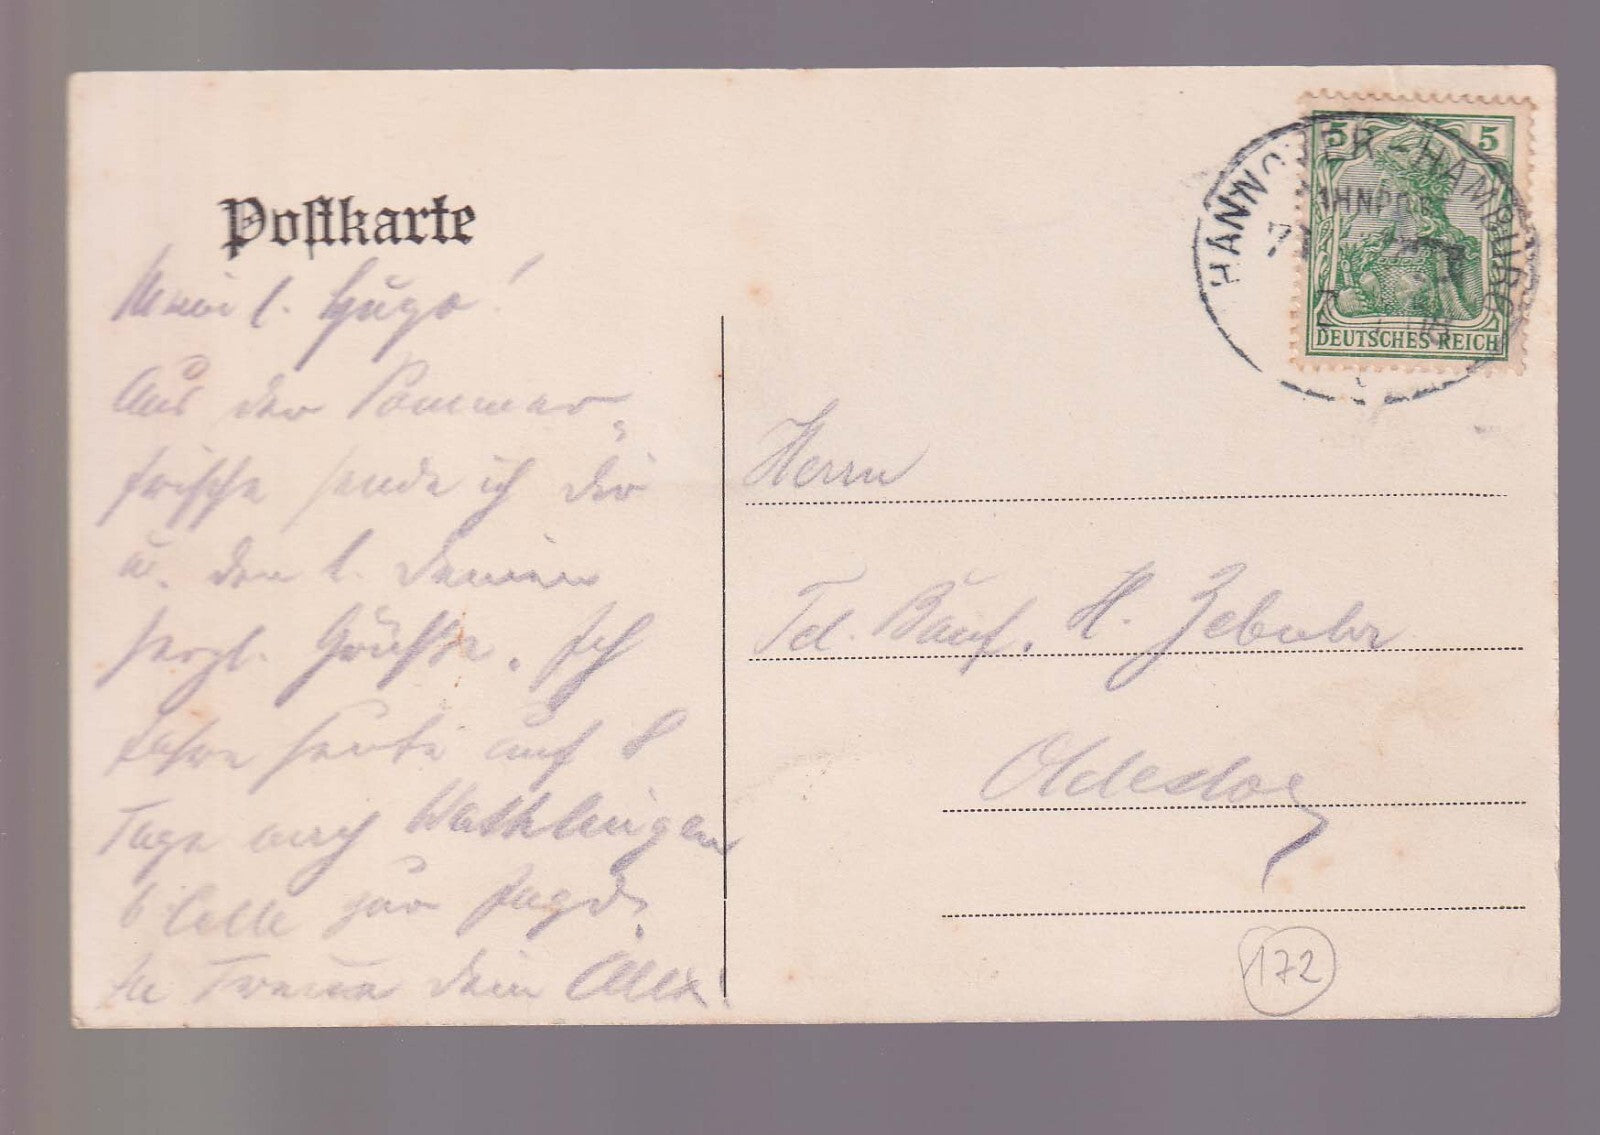 Postkarte
Mein l. Hugo!
Aus der Sommer-
frische sende ich dir
u. den l. Deinen
herzl. Grüße. Ich
fahre heute auf 8
Tage nach Wathlingen
b. Celle zur Jagd.
In Treue dein Alex!
HANNOVER - HAMBURG
BAHNPOST
5 5
DEUTSCHES REICH
Herrn
H.
Oldesloe
172